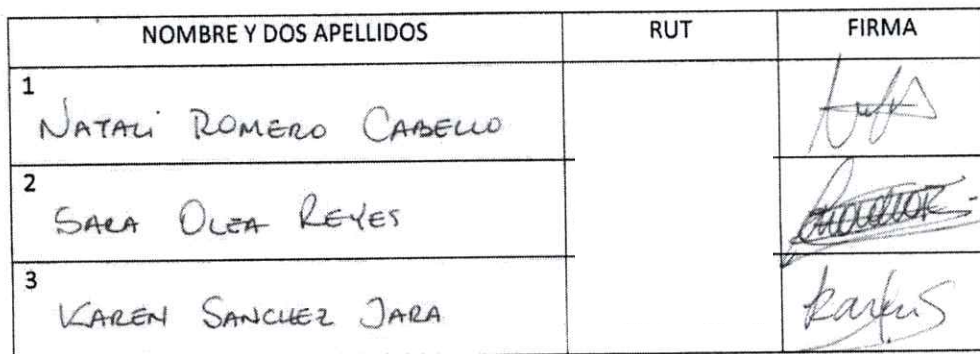 NOMBRE Y DOS APELLIDOS RUT FIRMA
1
NATALI ROMERO CABELLO
2
SARA OLEA REYES
3
KAREN SANCHEZ JARA